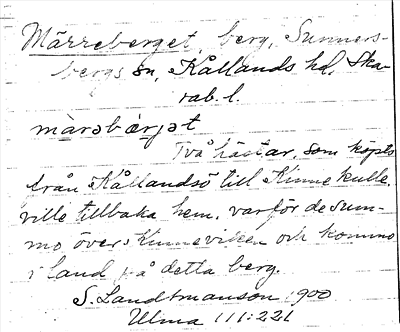 Märreberget, berg, Sunners-
bergs sn, Kållands hd, Ska-
rab. l.
màrəbær̩jət
Två hästar, som köpts
från Kållandsö till Kinnekulle,
ville tillbaka hem, varför de sum-
mo över Kinneviken och kommo
i land på detta berg.
S. Landtmanson 1900
Ulma 111:221